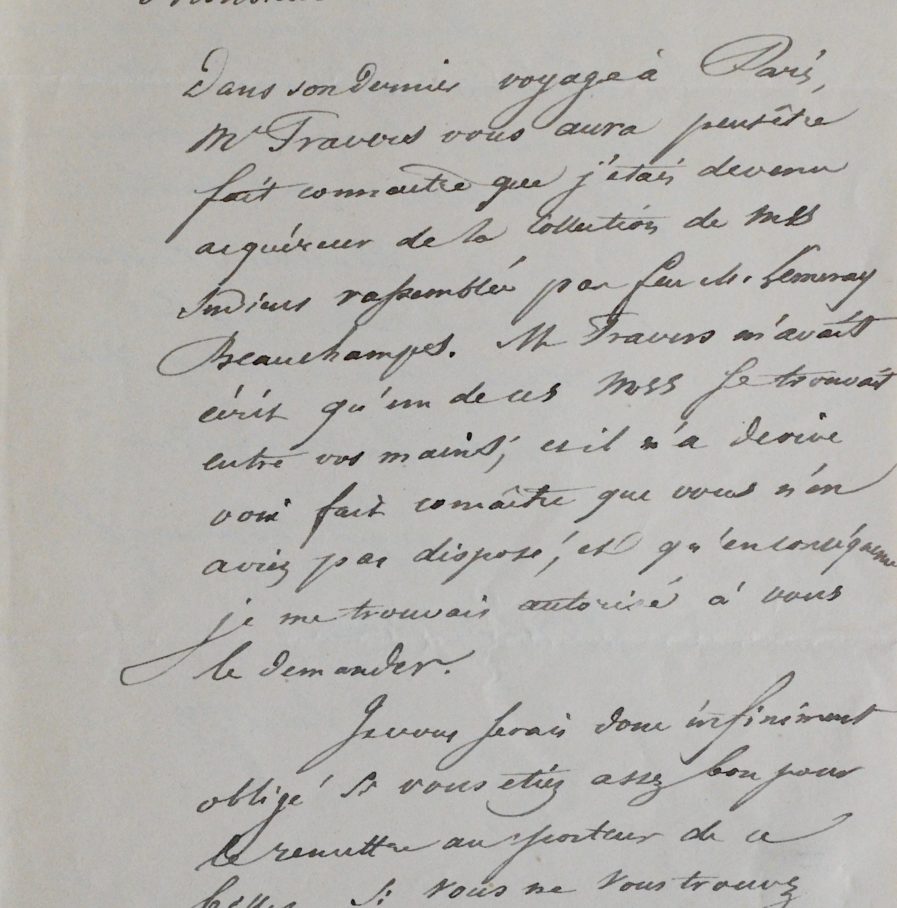 Monsieur
Dans son dernier voyage à Paris,
Mr Travers vous aura peutêtre
fait connaitre que j'étais devenu
acquéreur de la Collection de MSS
Indiens rassemblée par feu M. Lemeray
Beauchampes. Mr Travers m'avait
écrit qu'un de ces MSS se trouvait
entre vos mains; et il m'a
fait connaître que vous n'en
aviez pas disposé, et qu'en conséquence
je me trouvais autorisé à vous
le demander.
Je vous serais donc infiniment
obligé si vous etiez assez bon pour
le remettre au porteur de ce
Si vous ne vous trouvez